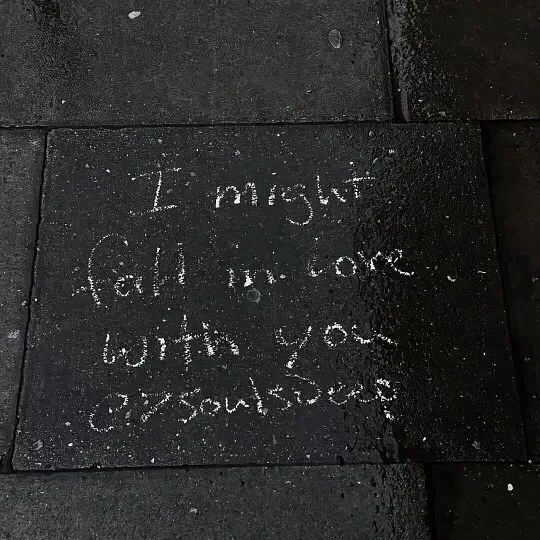 I might
fall in love
with you
@2soulsDeep